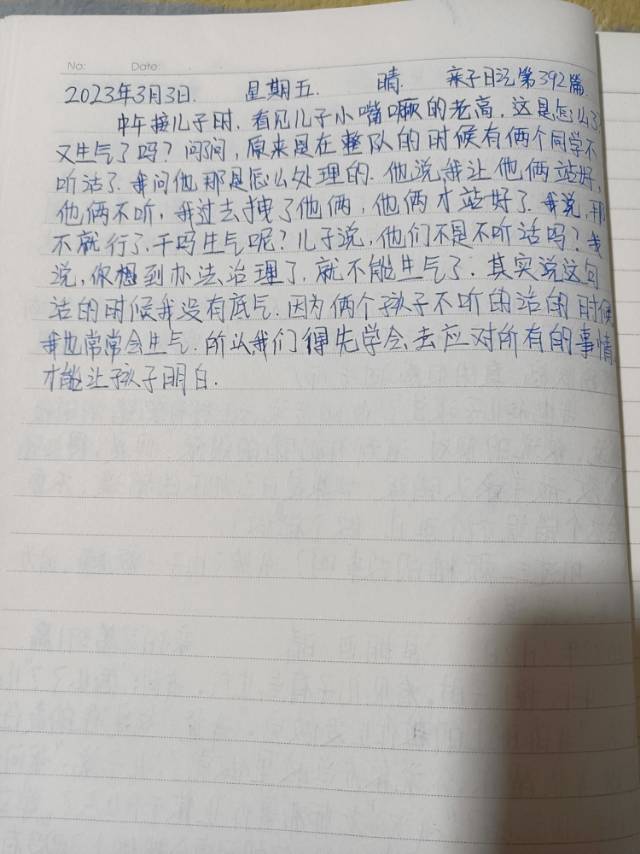 No: Date:
2023年3月3日. 星期五. 晴. 亲子日记第392篇
中午接儿子时,看见儿子小嘴噘的老高,这是怎么了
又生气了吗?问问,原来是在整队的时候有俩个同学不
听话了.我问他那是怎么处理的.他说,我让他俩站好,
他俩不听,我过去拽了他俩,他俩才站好了.我说,那
不就行了,干吗生气呢?儿子说,他们不是不听话吗?我
说,你想到办法治理了.就不能生气了.其实说这句
话的时候我没有底气.因为俩个孩子不听的话的时候
我也常常会生气.所以我们得先学会,去应对所有的事情
才能让孩子明白.